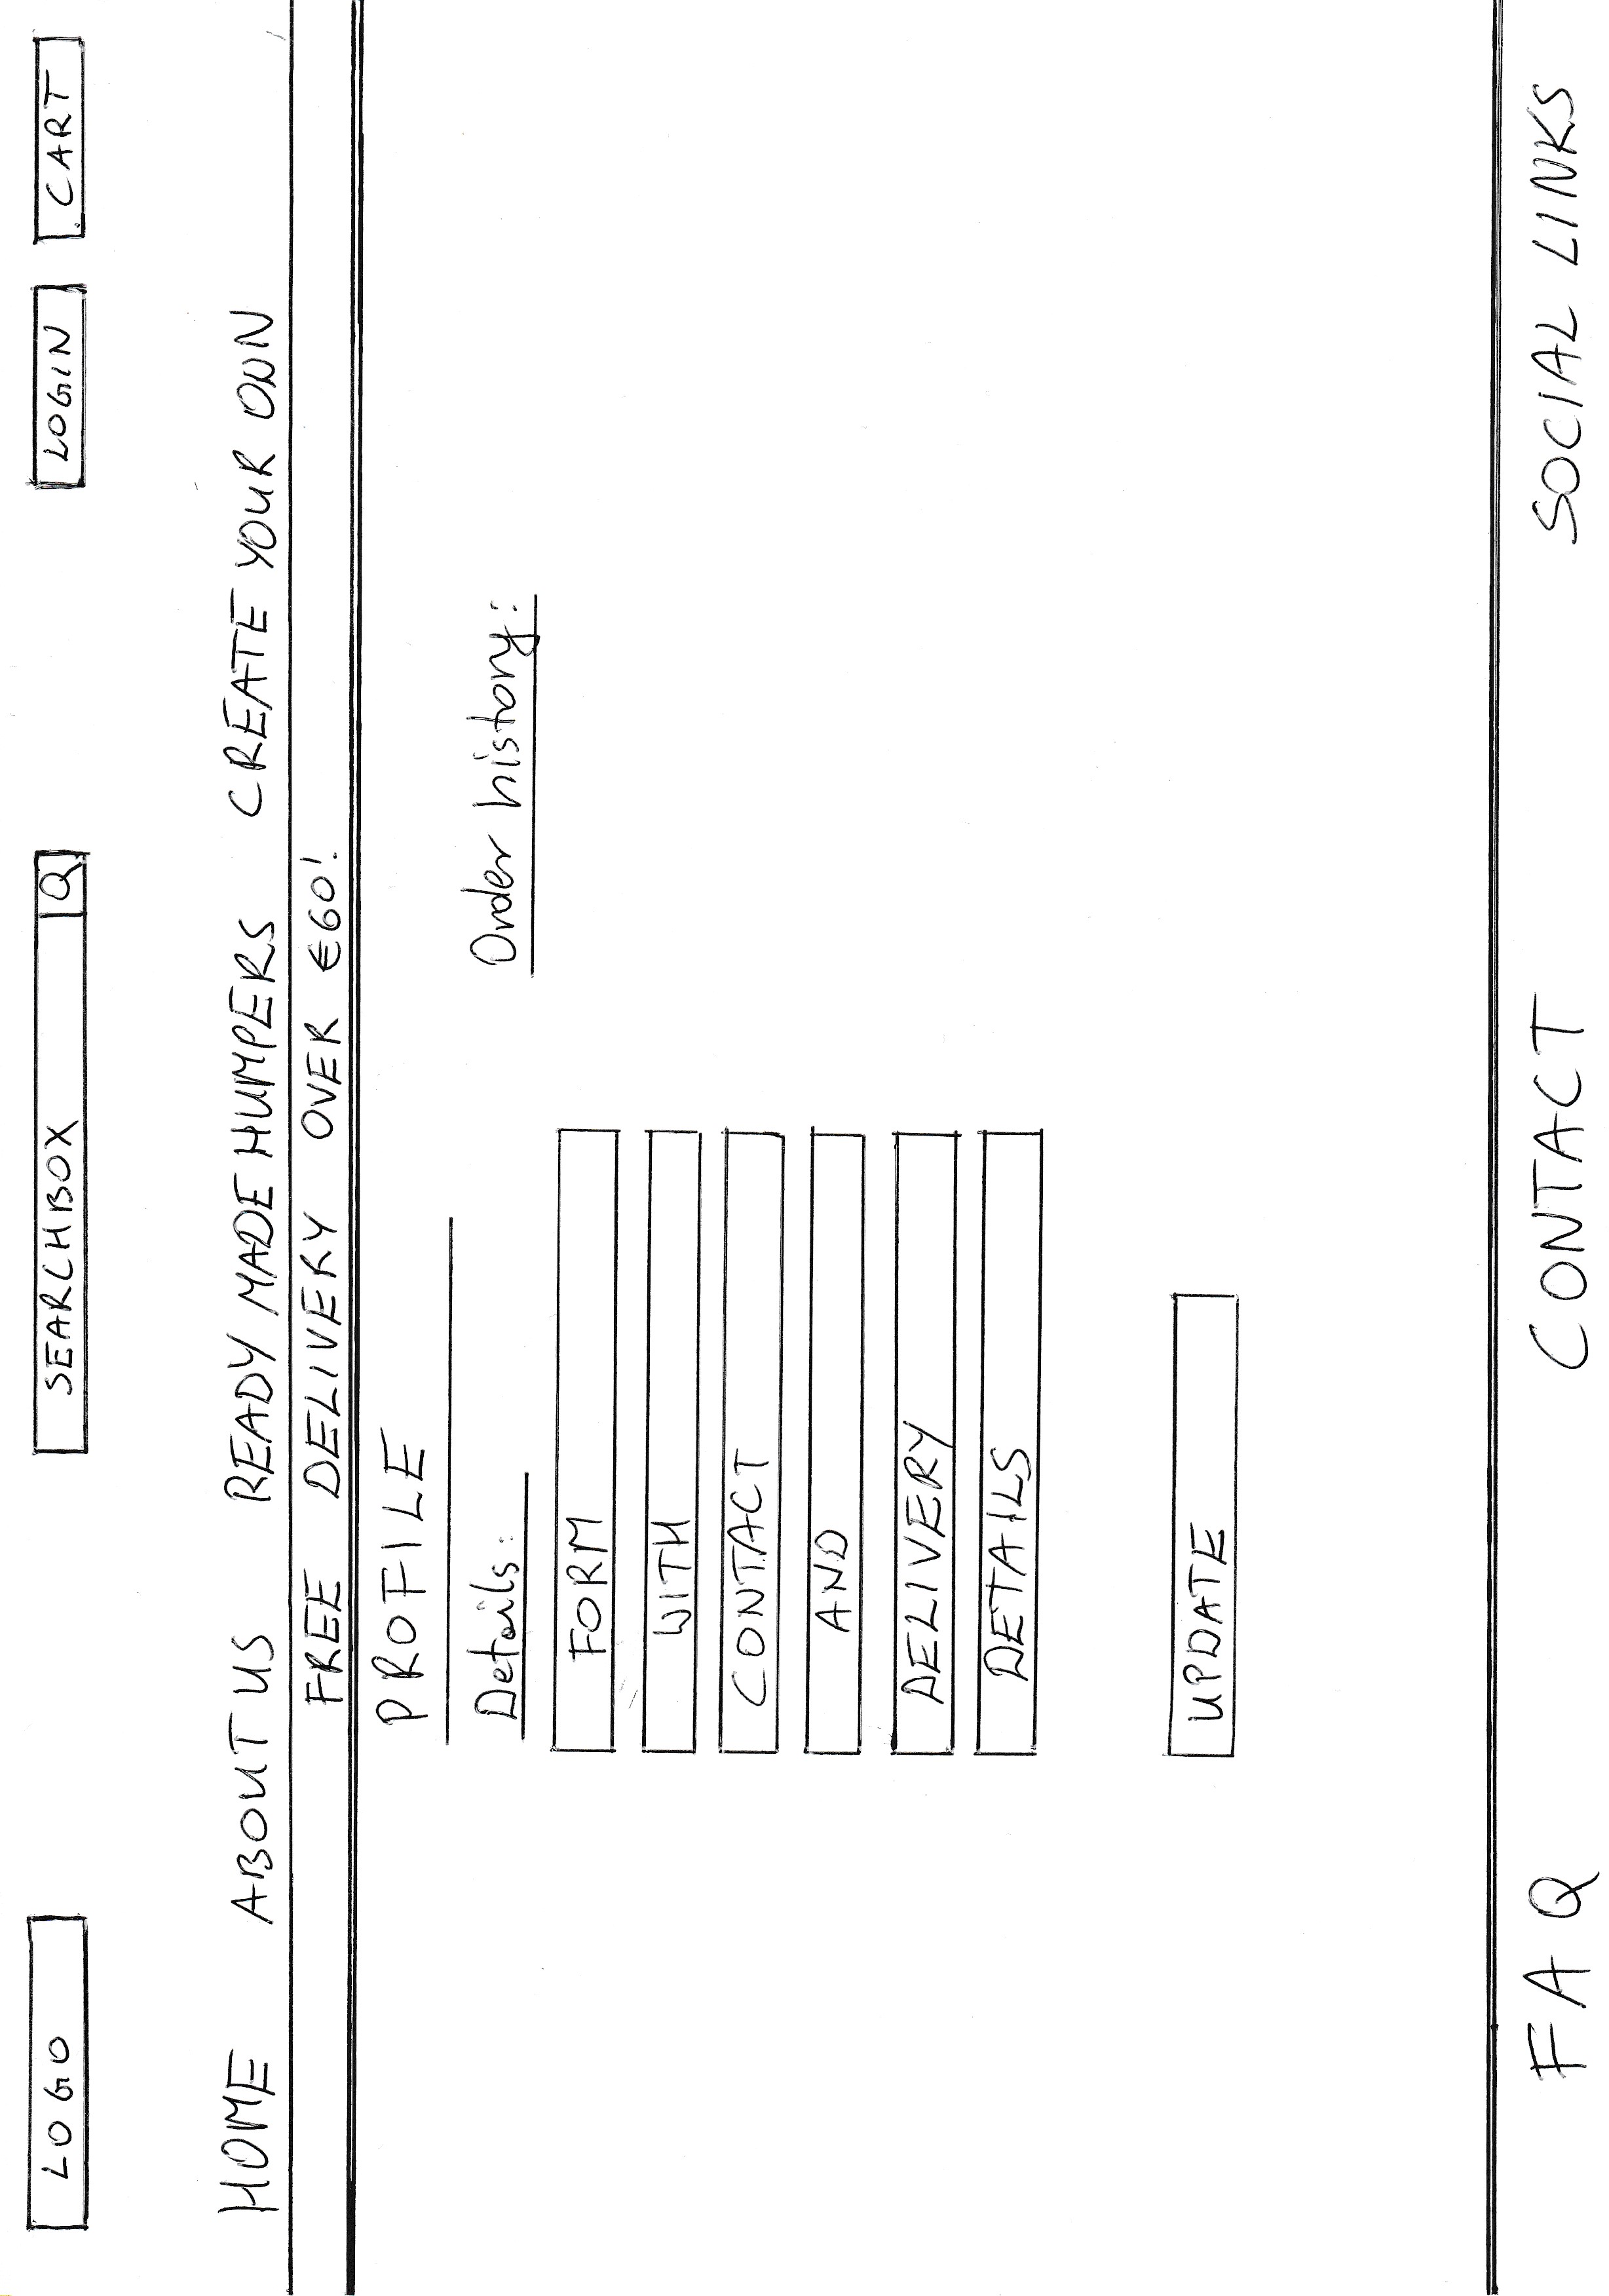 LOGO SEARCHBOX Q LOGIN CART
HOME ABOUT US READY MADE HUMPERS CREATE YOUR OWN
FREE DELIVERY OVER €60!
PROFILE
Details: Order history:
FORM
WITH
CONTACT
AND
DELIVERY
DETAILS
UPDATE
FAQ CONTACT SOCIAL LINKS